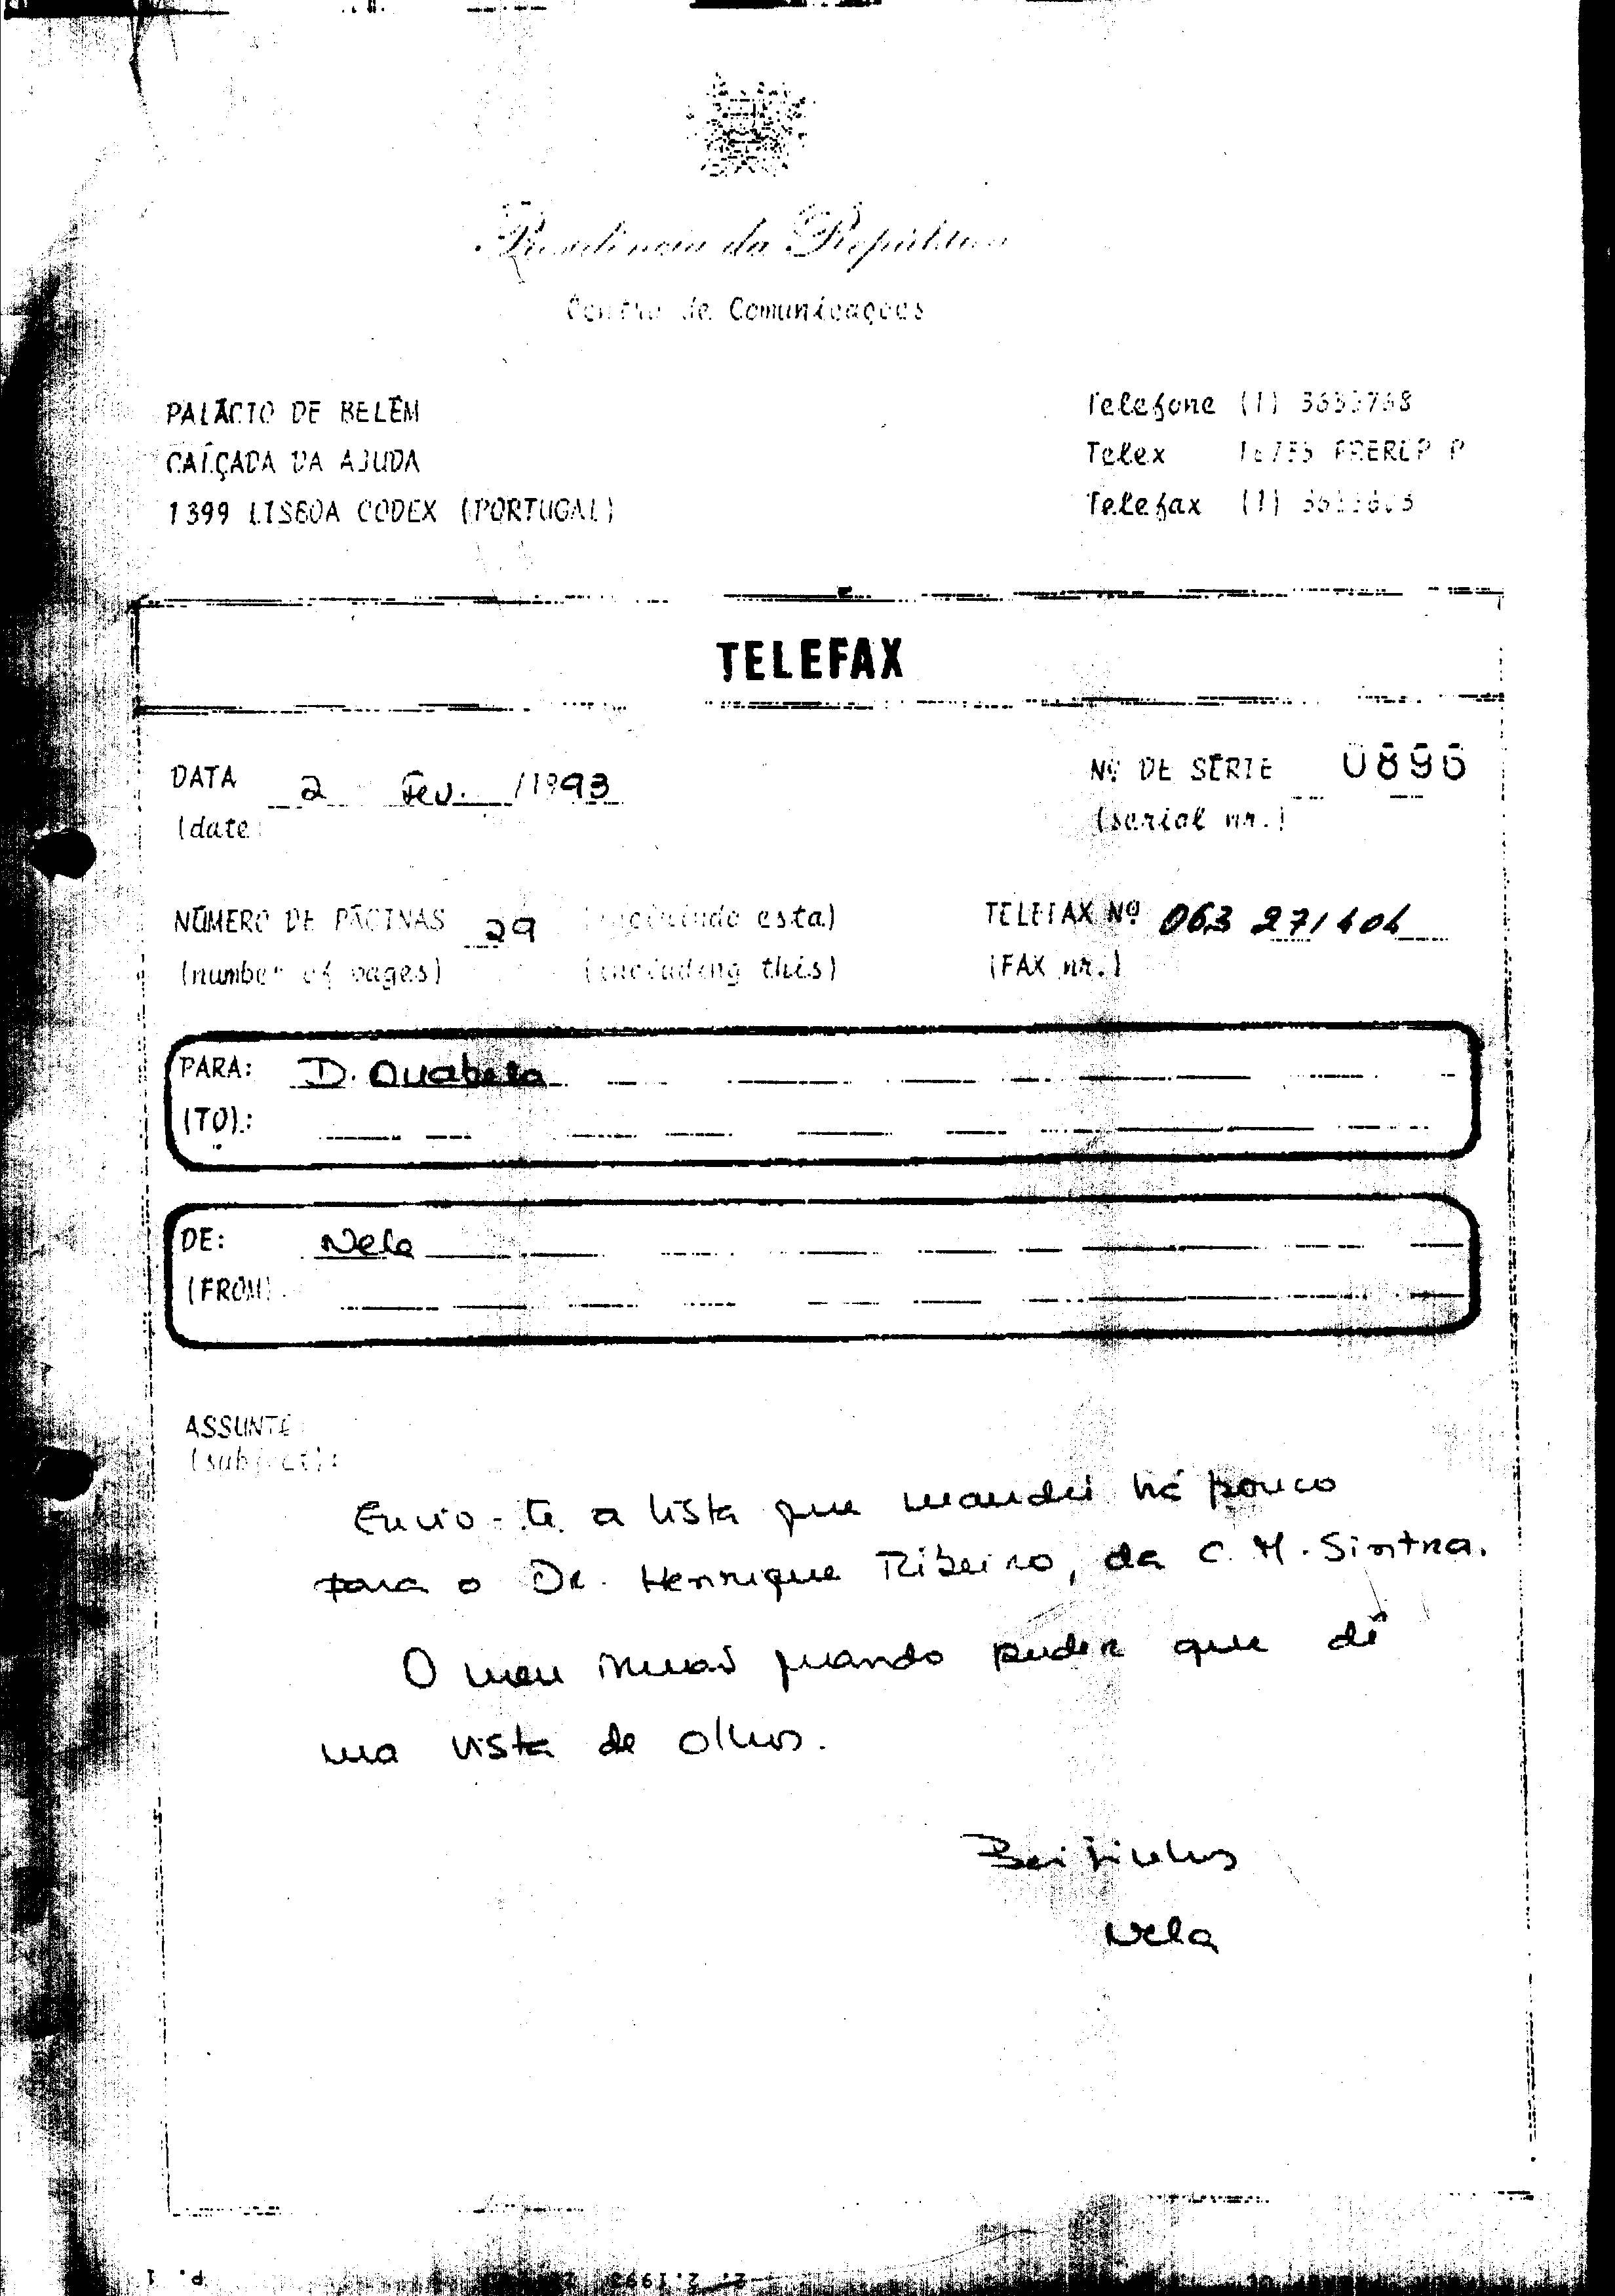 Presidência da República
Centro de Comunicações
PALÁCIO DE BELÉM
CALÇADA DA AJUDA
1399 LISBOA CODEX (PORTUGAL)
Telefone (1)
Telex
Telefax (1)
TELEFAX
DATA 2 Fev. /1993
(date)
Nº DE SÉRIE 0896
(serial nr.)
NÚMERO DE PÁGINAS 29 (incluindo esta)
(number of pages) (including this)
TELEFAX Nº 063 271404
(FAX nr.)
PARA: D.
(TO):
DE: Nela
(FROM)
ASSUNTO
(subject):
Envio-te a lista que mandei há pouco
para o Dr. Henrique Ribeiro, da C. M. Sintra.
O meu quando puder que dê
uma vista de olhos.
Beijinhos
Nela
P. 1